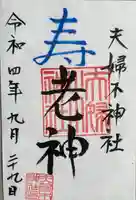 夫婦木神社
寿老神
令和四年九月二十九日